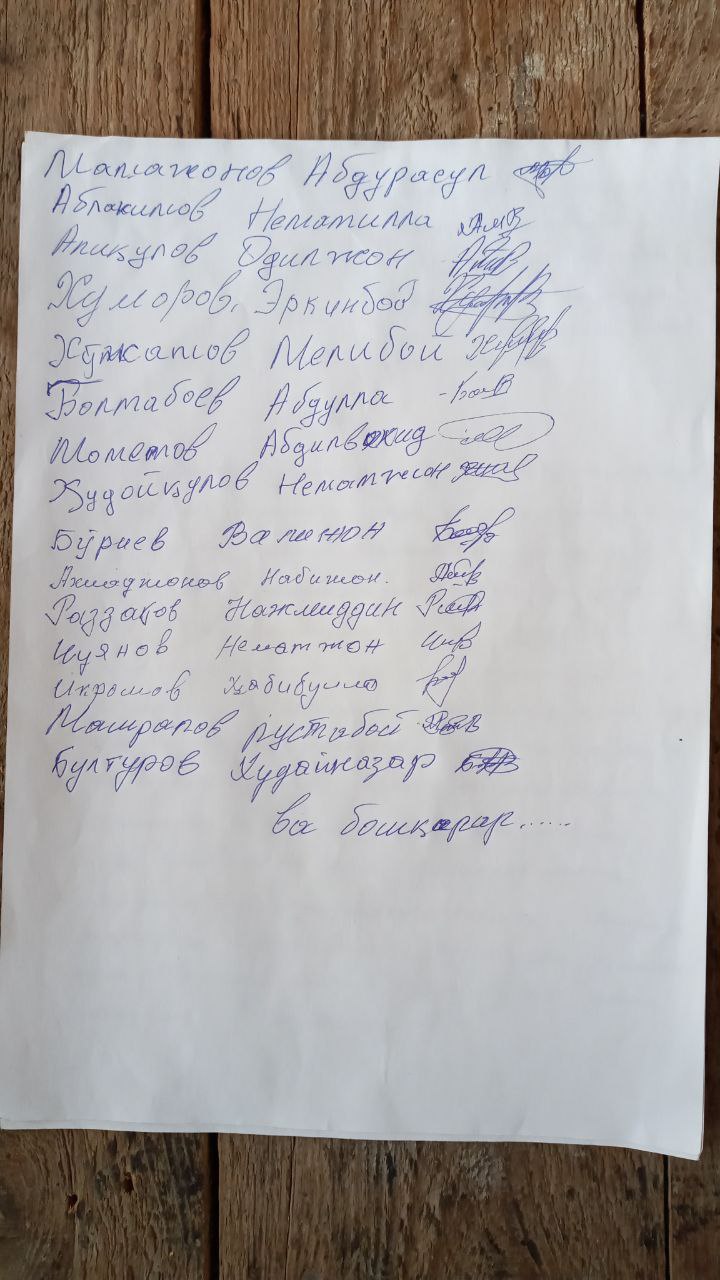 Маматжонов Абдурасул
Аблакимов Нематилла
Аликулов Одилжон
Хуморов. Эркинбой
Хўжаматов Мелибой
Болтабоев Абдулла
Мометов Абдилвохид
Худойқулов Нематжон
Бўриев Валижон
Ахмаджонов Набижон.
Раззаков Нажмиддин
Куянов Нематжон
Икромов Ҳабибулло
Машрапов Рустабой
Бултуров Худайназар
ва бошқарар......